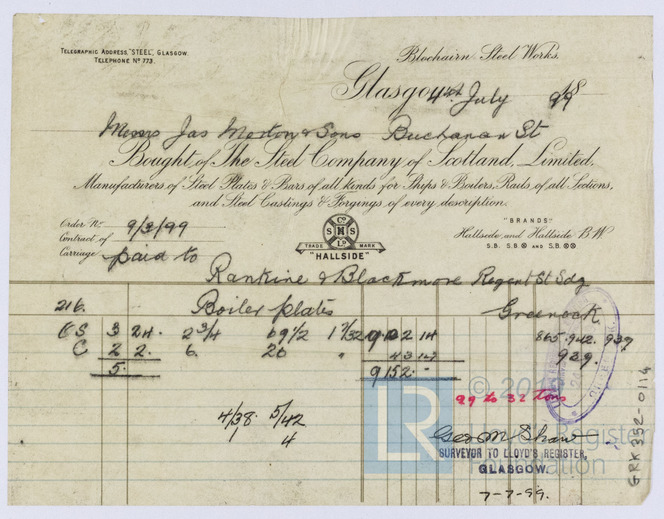 TELEGRAPHIC ADDRESS, "STEEL", GLASGOW.
TELEPHONE No 773.
Blochairn Steel Works.
Glasgow 4th July 99
Messrs Jas Morton & Sons Buchanan St
Bought of The Steel Company of Scotland, Limited,
Manufacturers of Steel Plates & Bars of all kinds for Ships & Boilers, Rails of all Sections,
and Steel Castings & Forgings of every description.
Order No 9/3/99
Contract of
Carriage paid to
Co
S H S
LD
TRADE MARK
"HALLSIDE"
"BRANDS"
Hallside and Hallside B.W
S.B. S.B AND S.B.
Rankine & Blackmore Regent St Sdg
216. Boiler plates Greenock
S 3 24. 2 3/4 69 1/2 1 7/32 14 865.942.939
C 2 2. 6. 26 " 939.
5. 9152. "
99 to 32 tons
4/38. 5/42
1 4
Geo M Shaw
SURVEYOR TO LLOYD'S REGISTER,
GLASGOW.
7-7-99.
GRK 332-0114
LR
© Lloyd's Register
Foundation